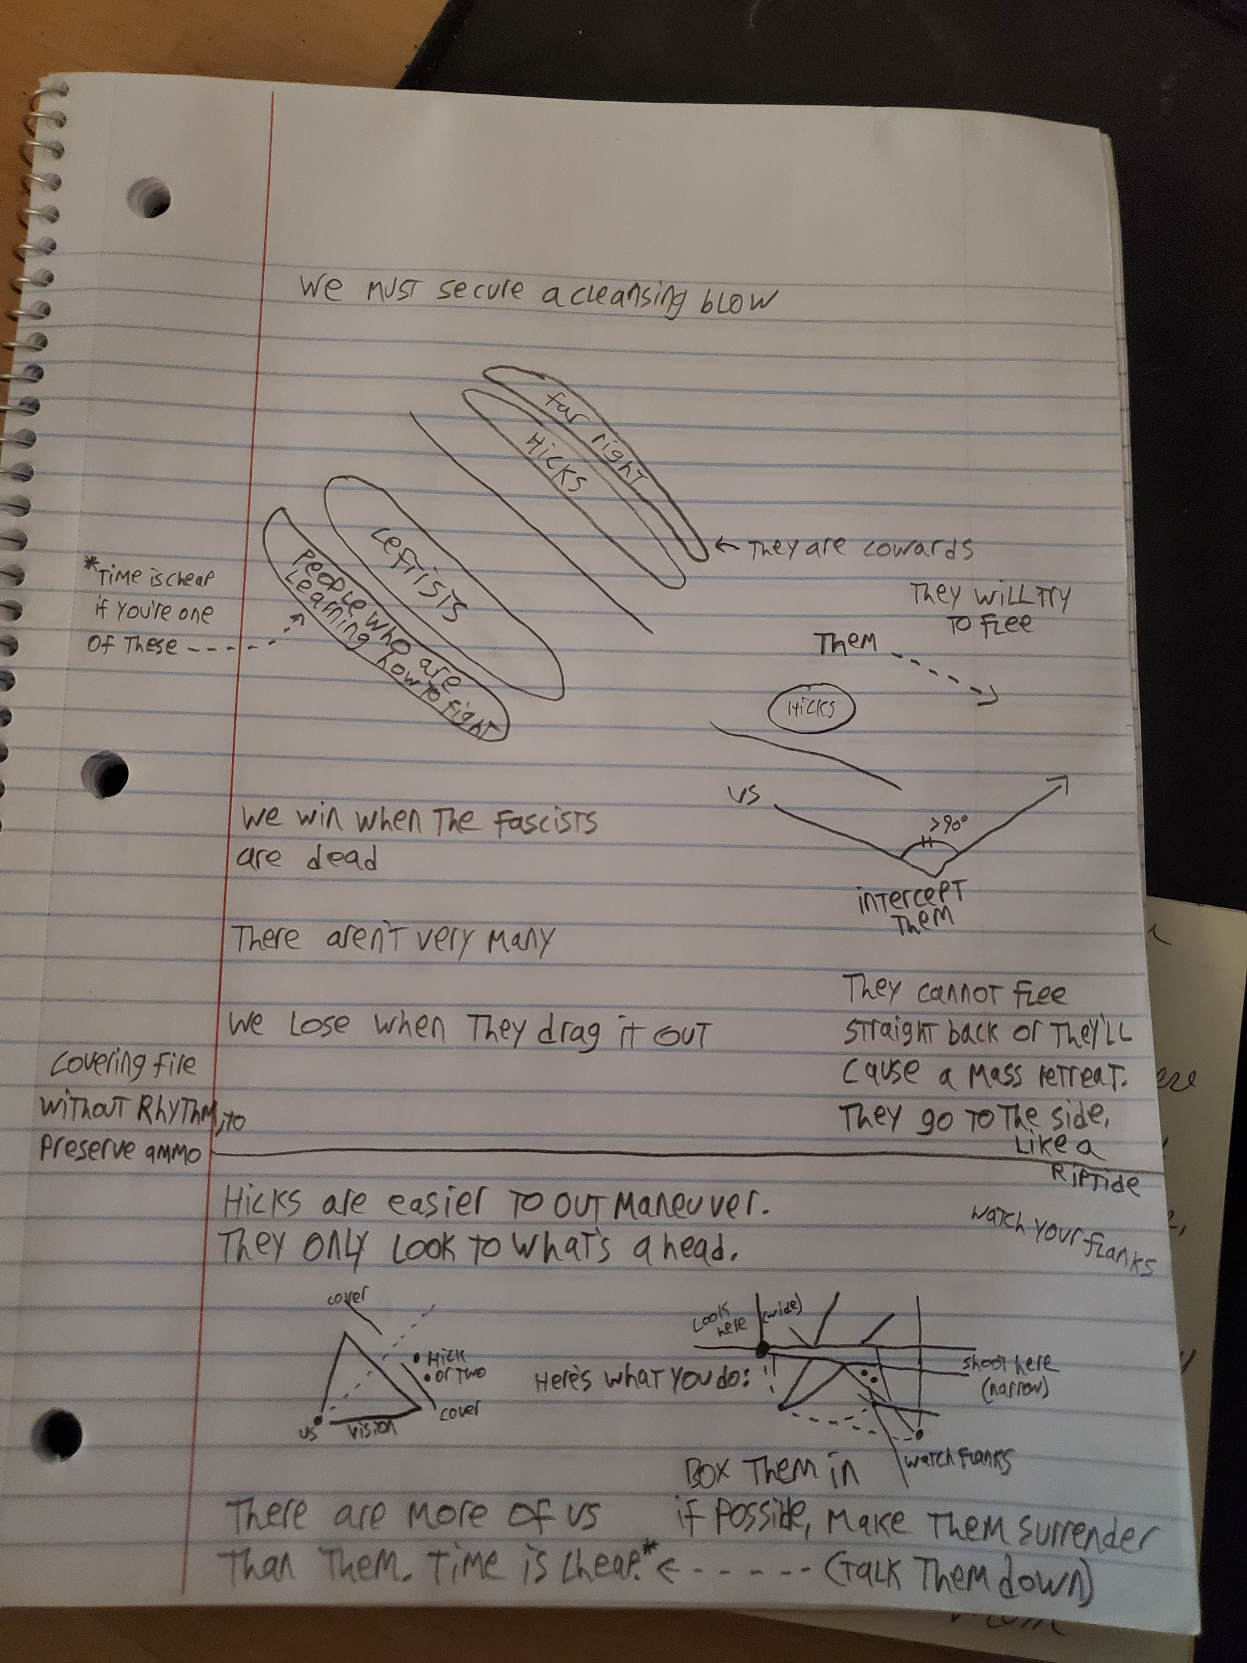 We must secure a cleansing blow
far right
Hicks
Leftists
People who are
Learning how to fight
← They are cowards
*Time is cheap
if you're one
of These
They will try
to flee
Them
Hicks
us
>90°
intercept
Them
We win when The fascists
are dead
There aren't very many
They cannot flee
straight back or They'll
cause a mass retreat.
They go to The side,
Like a
Riptide
We lose when They drag it out
covering fire
without Rhythm, to
preserve ammo
Hicks are easier to out maneuver.
They only look to what's ahead.
watch your flanks
cover
Hick
or two
cover
us
vision
Here's what you do:
Look
here
(wide)
shoot here
(narrow)
watch flanks
Box Them in
There are more of us
Than Them. Time is cheap.*
if possible, make Them surrender
(Talk Them down)